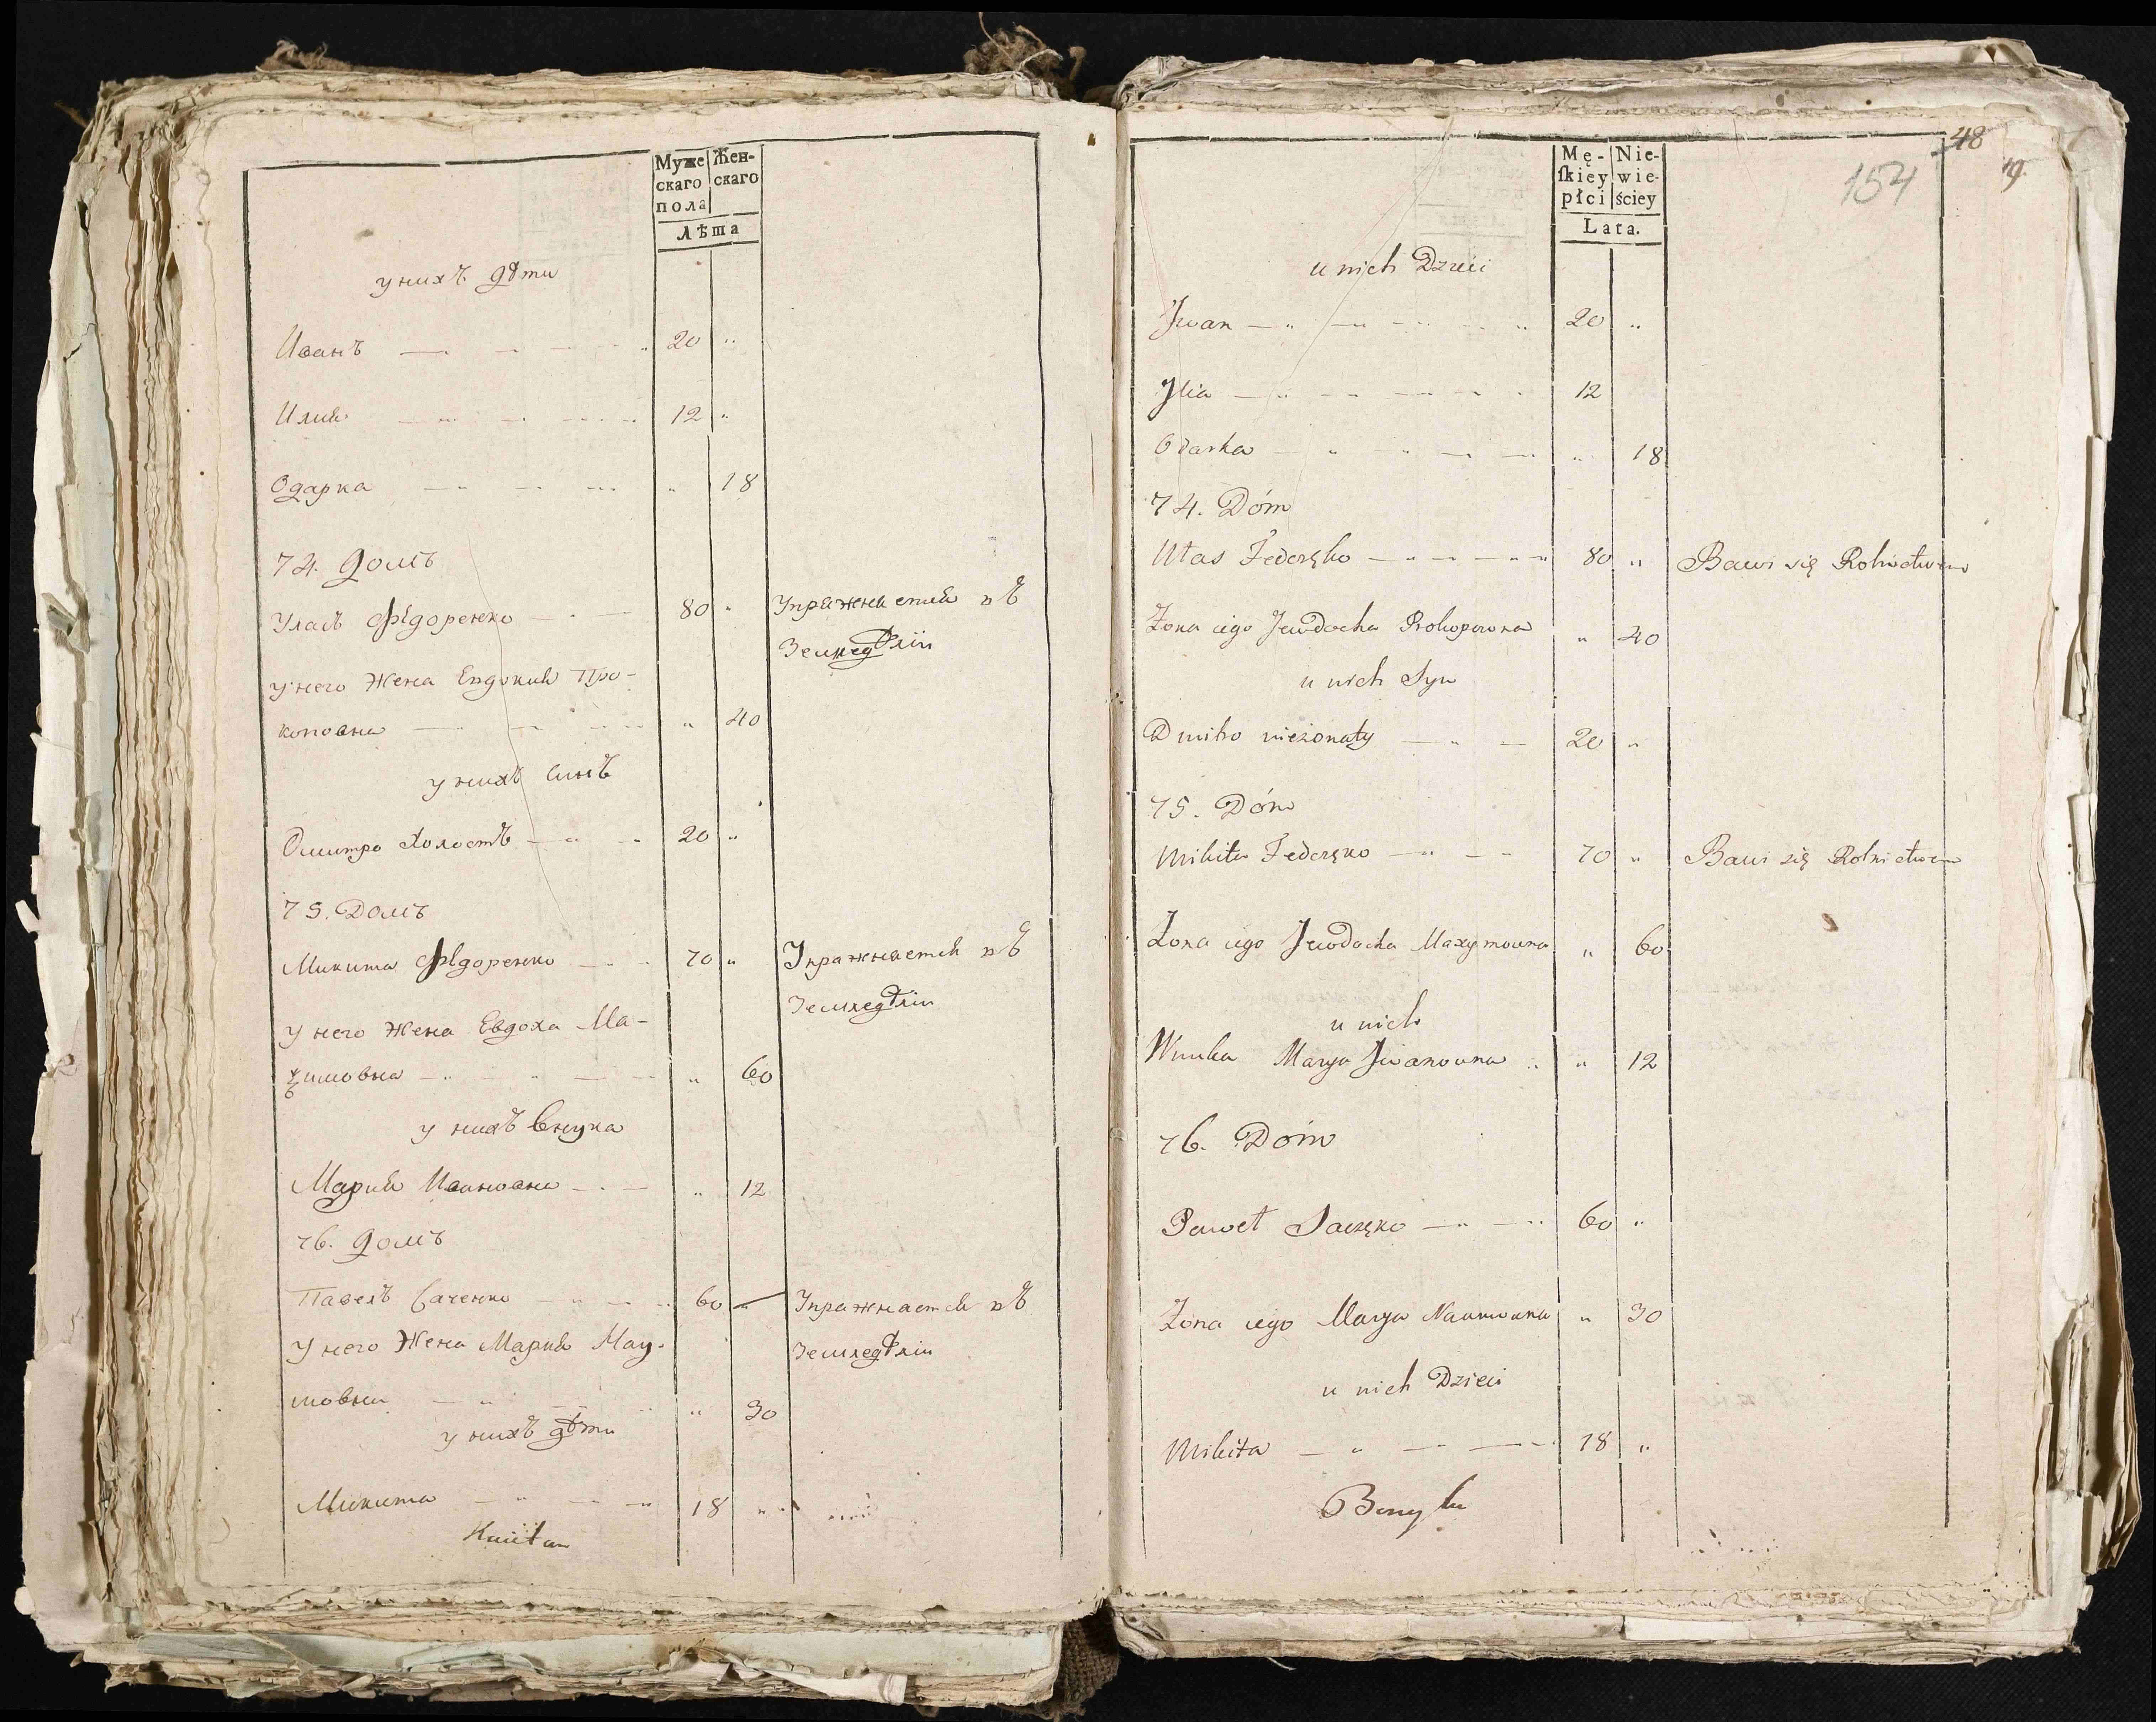 Муже Жен-
скаго скаго
пола
Лѣта
у нихъ дѣти
Иванъ 20 "
Илия 12 "
Одарка " 18
74. Домъ
Уласъ Фѣдоренко 80 " Упражняется въ
Земледѣліи
у него Жена Евдокия Про-
коповна " 40
у нихъ синъ
Дмитро Холостъ 20 "
75. Домъ
Микита Фѣдоренко 70 " Упражняется въ
Земледѣліи
У него Жена Евдоха Ма-
ѯимовна " 60
у нихъ Внука
Мария Ивановна " 12
76. Домъ
Павелъ Саченко 60 " Упражняется въ
Земледѣліи
У него Жена Мария Нау-
мовна " 30
у нихъ дѣти
Микита 18 "
Mę- Nie-
ſkiey wie-
płci ściey
Lata.
48
154
u nich Dzieci
Jwan 20 "
Jlia 12
Odarka " 18
74. Dóm
Ułas Fedoręko 80 " Bawi się Rolnictwem
Żona iego Jewdocha Prokopowna " 40
u nich Syn
Dmitro nieżonaty 20 "
75. Dóm
Mikita Fedoręko 70 " Bawi się Rolnictwem
Żona iego Jewdocha Maxymowna " 60
u nich
Wnuka Marya Jwanowna " 12
76. Dóm
Paweł Saczęko 60 "
Żona iego Marya Naumowna " 30
u nich Dzieci
Mikita 18 "